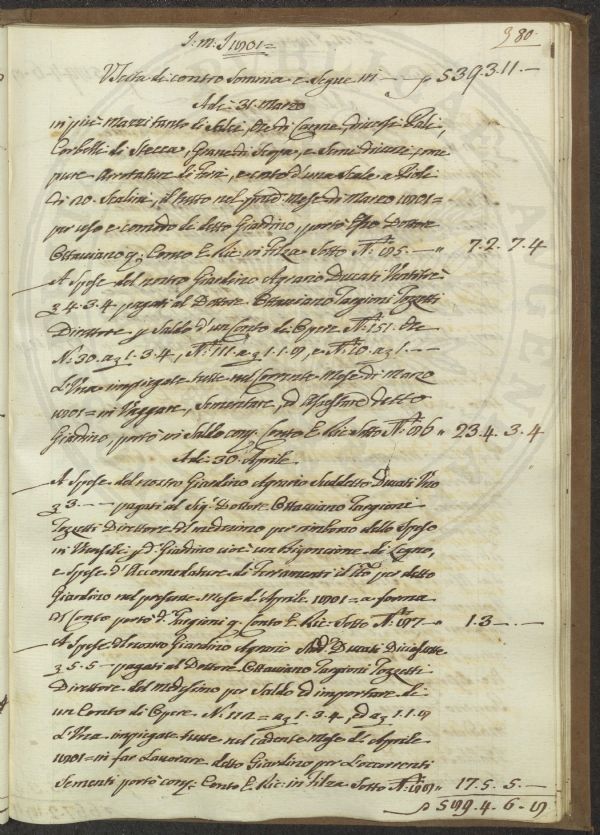 J: m: J 1801 =
380.
Vista di contro Somma e Segue in - - - ₯ 539.3.11. -
Adi: 31. Marzo
in più Mazzi tanto di Salci, che di Canne, diverse Pali,
Corbelli di Stecca, Granate di Scopa, e Seme diverse, come
pure Arrotature di Ferri, e costo d'una Scala a Pioli
di 20. Scalini, il tutto nel pred.° Mese di Marzo 1801 =
per uso e comodo di detto Giardino, portò Esso Dottore
Ottaviano q: Conto E. Ric: in Filza Sotto N.° 195. - " 7.2.7.4
A Spese del nostro Giardino Agrario Ducati Ventitre
4.3.4 pagati al Dottore Ottaviano Targioni Tozzetti
Direttore p Saldo d'un Conto di Opere N.° 151. che
N.° 30. a 1.3.4, N.° 111. a 1.1.8, e N.° 10. a 1. - -
d'Una impiegate tutte nel Corrente Mese di Marzo
1801 = in Vangare, Sementare, ed Assestare detto
Giardino, portò in Saldo conq: Conto E. Ric: Sotto N.° 196 " 23.4.3.4
Adi: 30. Aprile.
A Spese del nostro Giardino Agrario Suddetto Ducati Uno
3. - - pagati al Sig:r Dottore Ottaviano Targioni
Tozzetti Direttore d' medesimo per rimborso delle Spese
in Utensili p d.° Giardino cioè un Bigoncione di Legno,
e Spese d'Accomodature di Ferramenti il tutto per detto
Giardino nel presente Mese d'Aprile 1801 = a forma
di Conto portò d.° Targioni q: Conto E. Ric: Sotto N.° 197 " 1.3. - . -
A Spese d' nostro Giardino Agrario Sud.° Ducati Diciassette
5.5 - pagati al Dottore Ottaviano Targioni Tozzetti
Direttore del medesimo per Saldo ed importare di
un Conto di Opere N.° 112 = a 1.3.4, ed a 1.1.8
d'Una impiegate tutte nel cadente Mese di Aprile
1801 = in far Lavorare detto Giardino per l'occorrenti
Sementi portò conq: Conto E. Ric: in Filza Sotto N.° 198 " 17.5.5. -
₯ 588.4.6.8